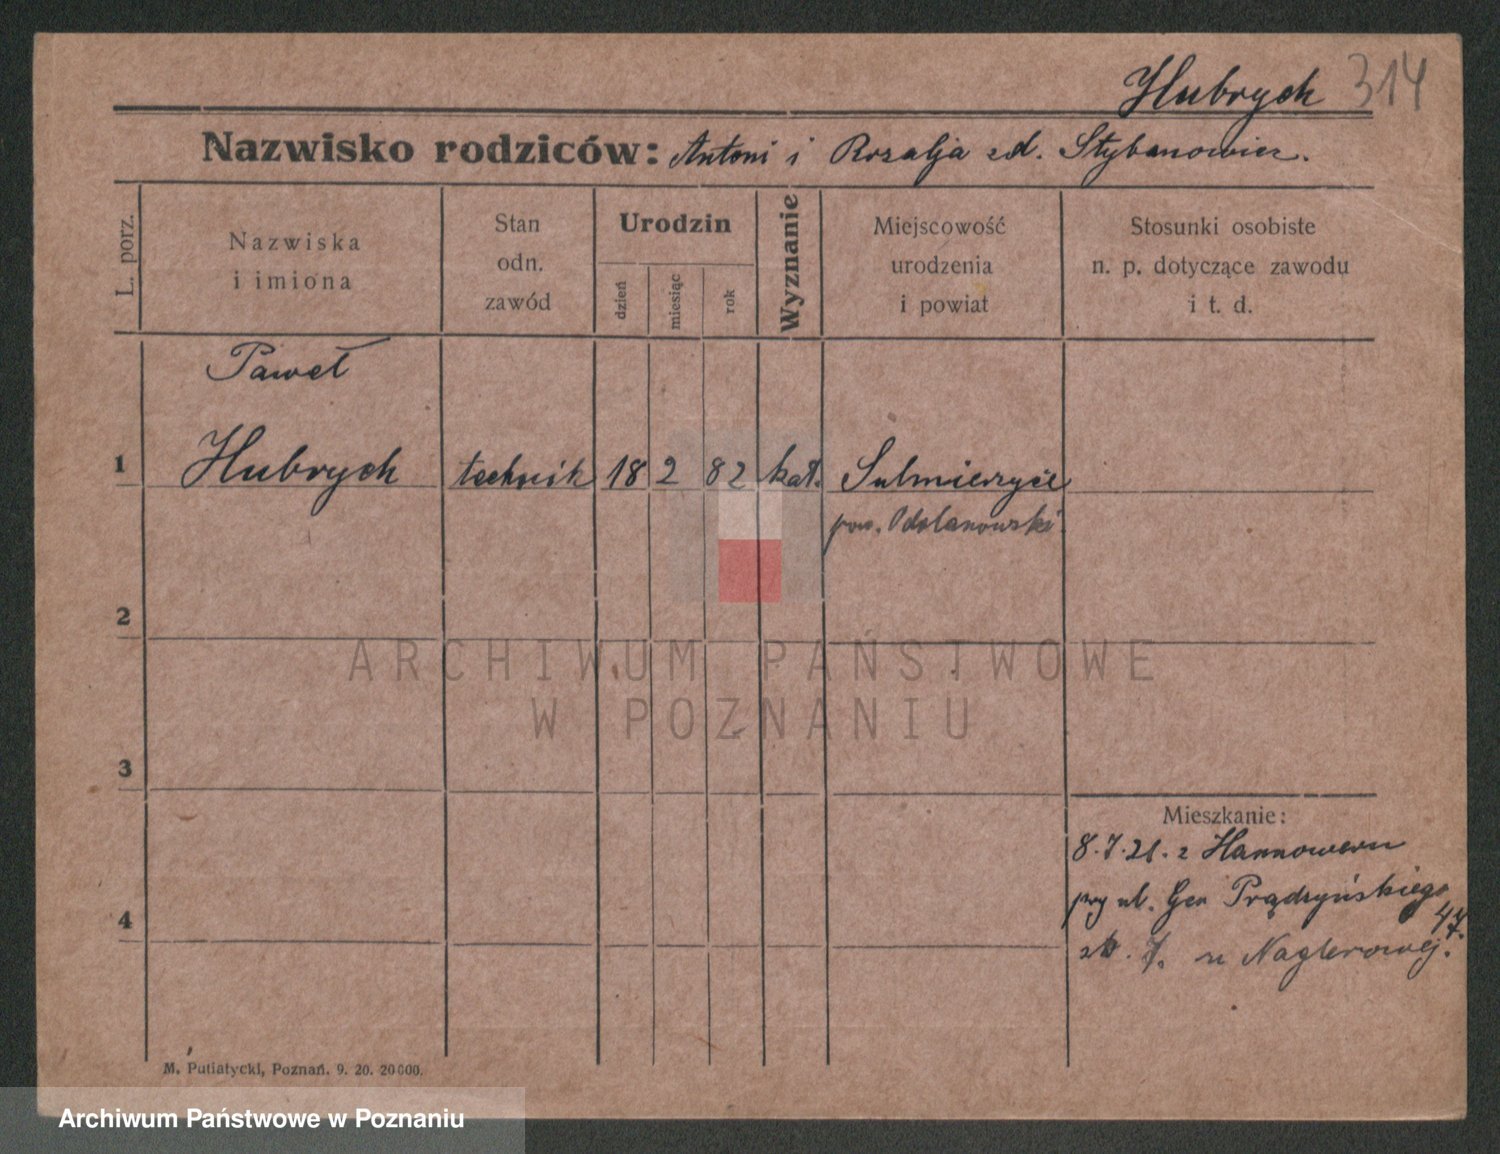 Hubrych 314
Nazwisko rodziców: Antoni i Rozalja zd. Stybanowicz.
L. porz.
Nazwiska
i imiona
Stan
odn.
zawód
Urodzin
dzień
miesiąc
rok
Wyznanie
Miejscowość
urodzenia
i powiat
Stosunki osobiste
n. p. dotyczące zawodu
i t. d.
Paweł
1 Hubrych technik 18 2 82 kat. Sulmierzyce
pow. Odolanowski.
2
3
4
ARCHIWUM PAŃSTWOWE
W POZNANIU
Mieszkanie:
8.7.21. z Hannoweru
przy ul. Gen Prądzyńskiego
47.
u Naglerowej.
M. Putiatycki, Poznań. 9. 20. 20000.
Archiwum Państwowe w Poznaniu